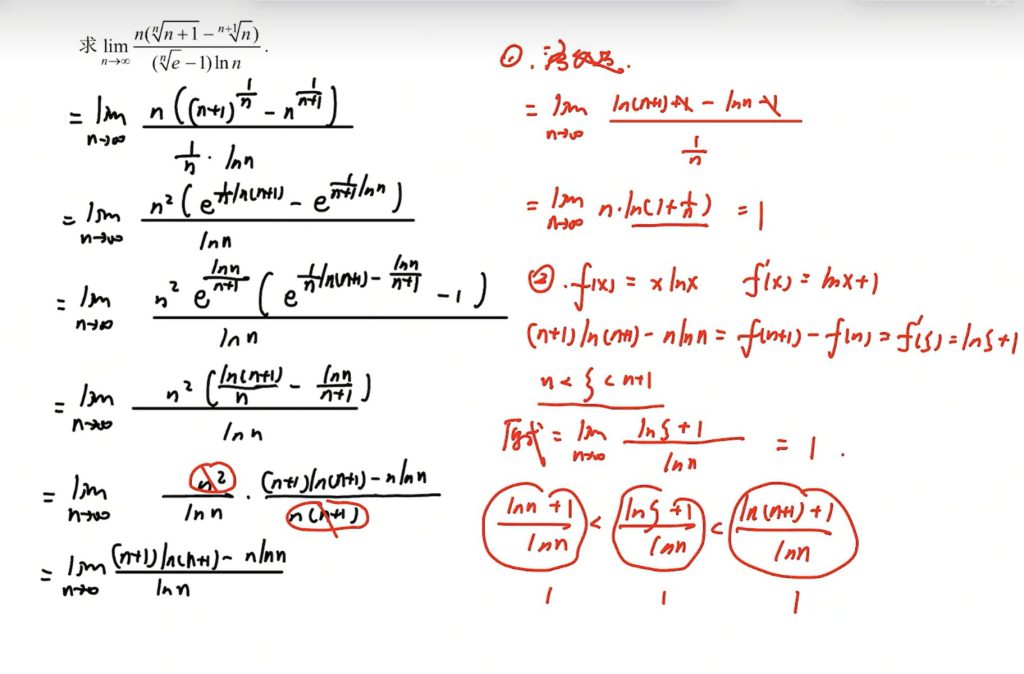 求 lim n→∞ n(ⁿ√(n+1) − ⁿ⁺¹√n) / ((ⁿ√e − 1) ln n) .
= lim n→∞ n((n+1)^(1/n) − n^(1/(n+1))) / (1/n · ln n)
= lim n→∞ n²(e^(1/n ln(n+1)) − e^(1/(n+1) ln n)) / ln n
= lim n→∞ n² e^(ln n/(n+1)) (e^(1/n ln(n+1) − ln n/(n+1)) − 1) / ln n
= lim n→∞ n² (ln(n+1)/n − ln n/(n+1)) / ln n
= lim n→∞ n² / ln n · ((n+1)ln(n+1) − n ln n) / n(n+1)
= lim n→∞ ((n+1)ln(n+1) − n ln n) / ln n
①. 洛必达.
= lim n→∞ (ln(n+1)+1 − ln n − 1) / (1/n)
= lim n→∞ n·ln(1+1/n) = 1
②. f(x) = x ln x f'(x) = ln x+1
(n+1)ln(n+1) − n ln n = f(n+1) − f(n) = f'(ξ) = ln ξ+1
n < ξ < n+1
原式 = lim n→∞ (ln ξ + 1) / ln n = 1 .
(ln n + 1) / ln n < (ln ξ + 1) / ln n < (ln(n+1) + 1) / ln n
1 1 1